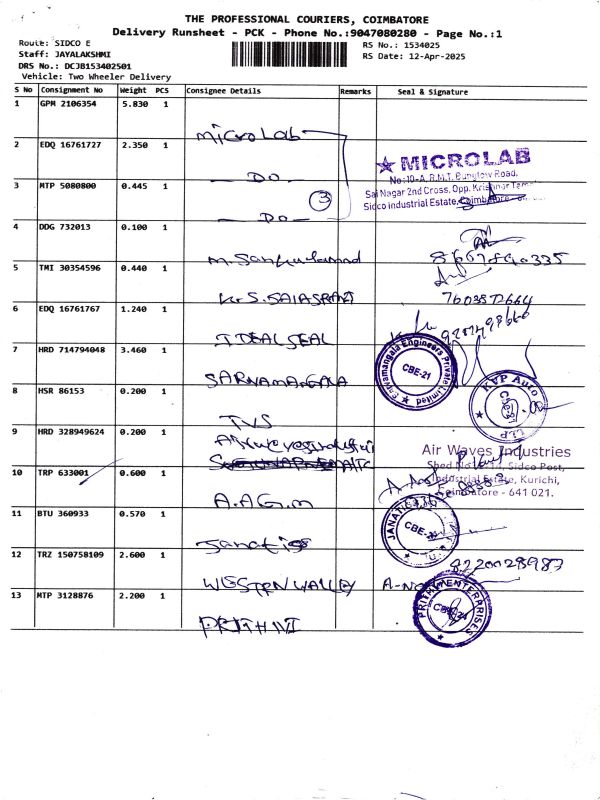 THE PROFESSIONAL COURIERS, COIMBATORE
Delivery Runsheet - PCK - Phone No.:9047080280 - Page No.:1
Route: SIDCO E
RS No.: 1534025
Staff: JAYALAKSHMI
RS Date: 12-Apr-2025
DRS No.: DCJ8153402501
Vehicle: Two Wheeler Delivery
S No Consignment No Weight PCS Consignee Details Remarks Seal & Signature
1 GPM 2106354 5.830 1
MicroLab
2 EDQ 16761727 2.350 1
DO
MICROLAB
No:10-A, R.M.T. Bunglow Road,
3 MTP 5080800 0.445 1
Sai Nagar 2nd Cross, Opp. Krishnar
Sidco industrial Estate, Coimbatore
3
DO
4 DDG 732013 0.100 1
8667890335
5 TMI 30354596 0.440 1
7603872664
6 EDQ 16761767 1.240 1
IDEAL SEAL
7 HRD 714794048 3.460 1
Engineers Private Limited
CBE-21
SARVAMANGALA
8 HSR 86153 0.200 1
KVP Auto LLP
TVS
9 HRD 328949624 0.200 1
Air Waves Industries
Sidco Post,
10 TRP 633001 0.600 1
Industrial Estate, Kurichi,
Coimbatore - 641 021.
A.A.G.M
11 BTU 360933 0.570 1
JANATICS
CBE-21
Janatics
12 TRZ 150758109 2.600 1
8220028987
WESTERN VALLEY
13 MTP 3128876 2.200 1
PRITHVI ENTERPRISES
PRITHVI